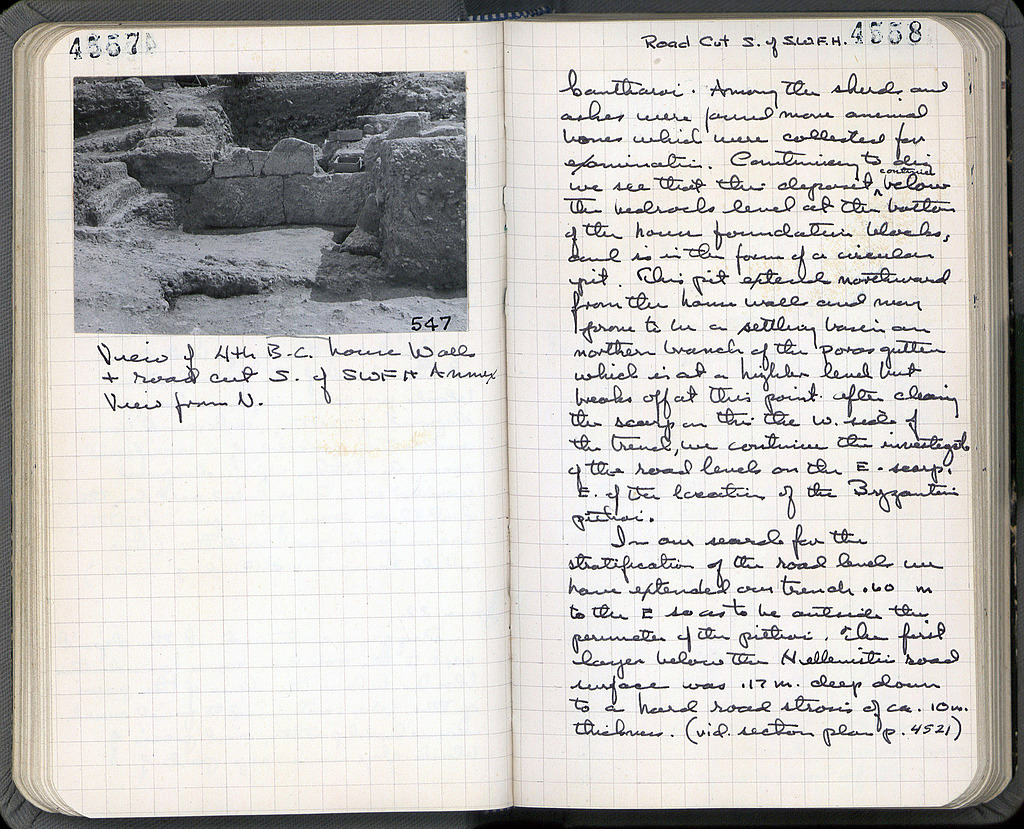 4557
547
View of 4th B.C. house Walls
+ road cut S. of SWFH Annex
View from N.
Road Cut S. of S.W.F.H. 4558
Cantharoi. Among the sherds and
ashes were found more animal
bones which were collected for
examination. Continuing to dig
we see that this deposit continued below
the bedrock level at the bottom
of the house foundation blocks,
and is in the form of a circular
pit. This pit extends northward
from the house walls and may
prove to be a settling basin on
northern branch of the poros gutter
which is at a higher level but
breaks off at this point. After cleaning
the scarp on the W. side of
the trench, we continue the investigat
of the road levels on the E. scarp,
E. of the location of the Byzantine
pithoi.
In our search for the
stratification of the road levels we
have extended our trench .60 m
to the E so as to be outside the
perimeter of the pithoi. The first
layer below the Hellenistic road
surface was .17 m. deep down
to a hard road strosis of ca. .10 m.
thickness. (vid. section plan p. 4521)